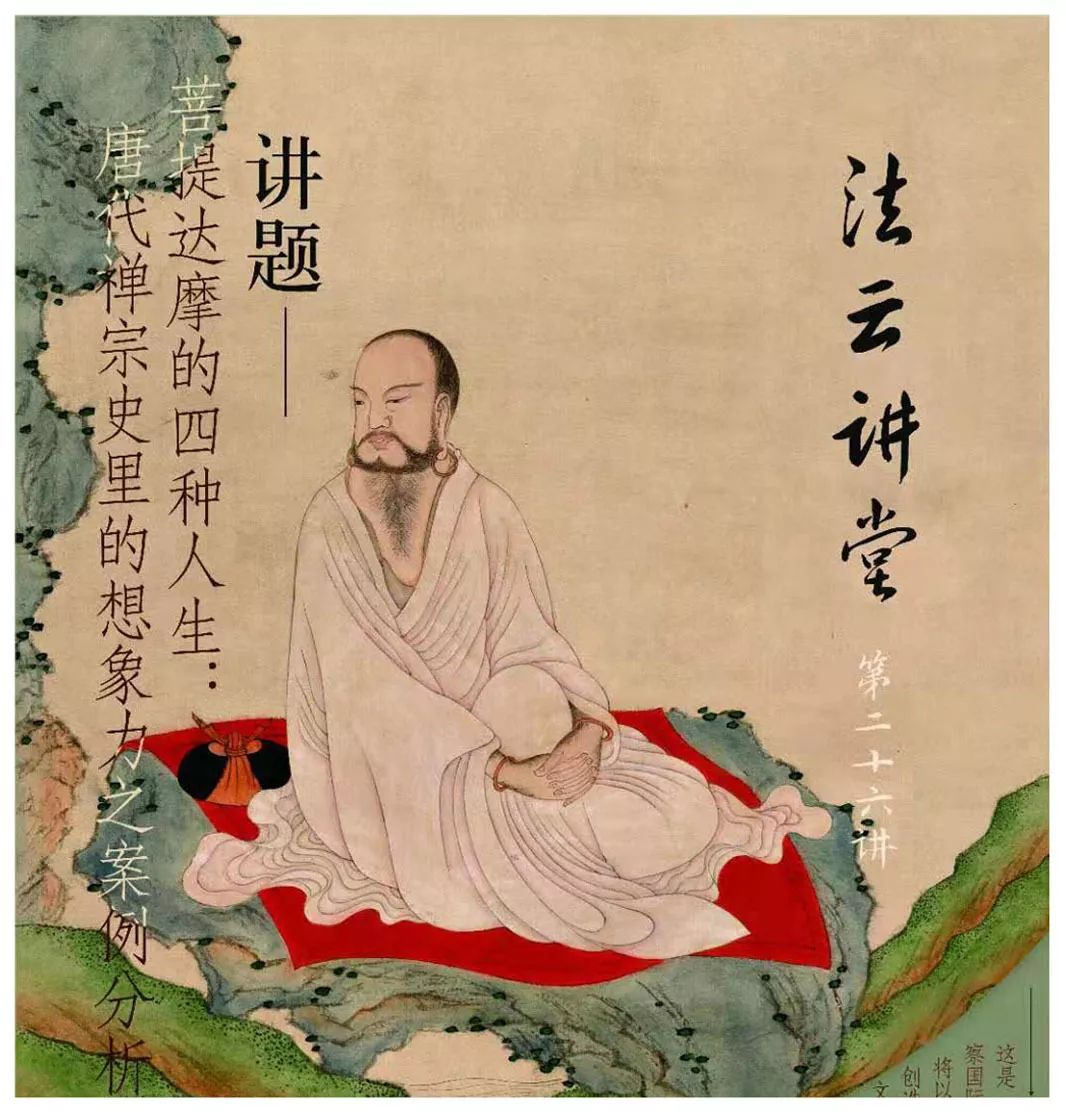 法云讲堂
第二十六讲
讲题
菩提达摩的四种人生：
唐代禅宗史里的想象力之案例分析
这是
察国际
将以
创造
文